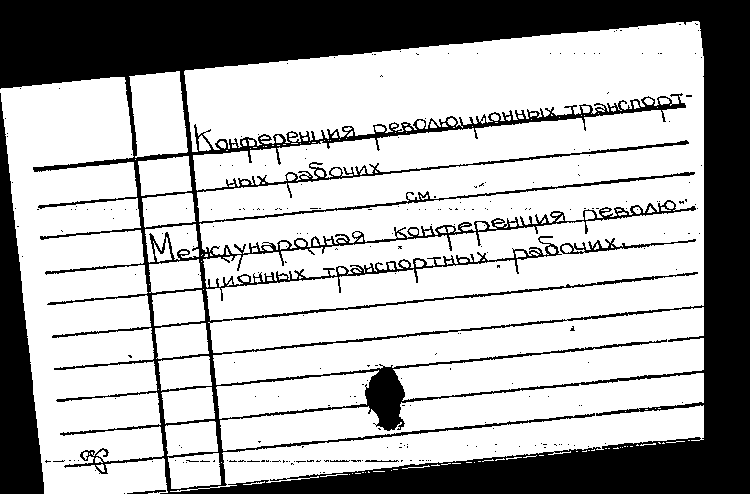 Конференция революционных транспорт-
ных рабочих
см.
Международная конференция револю-
ционных транспортных рабочих.